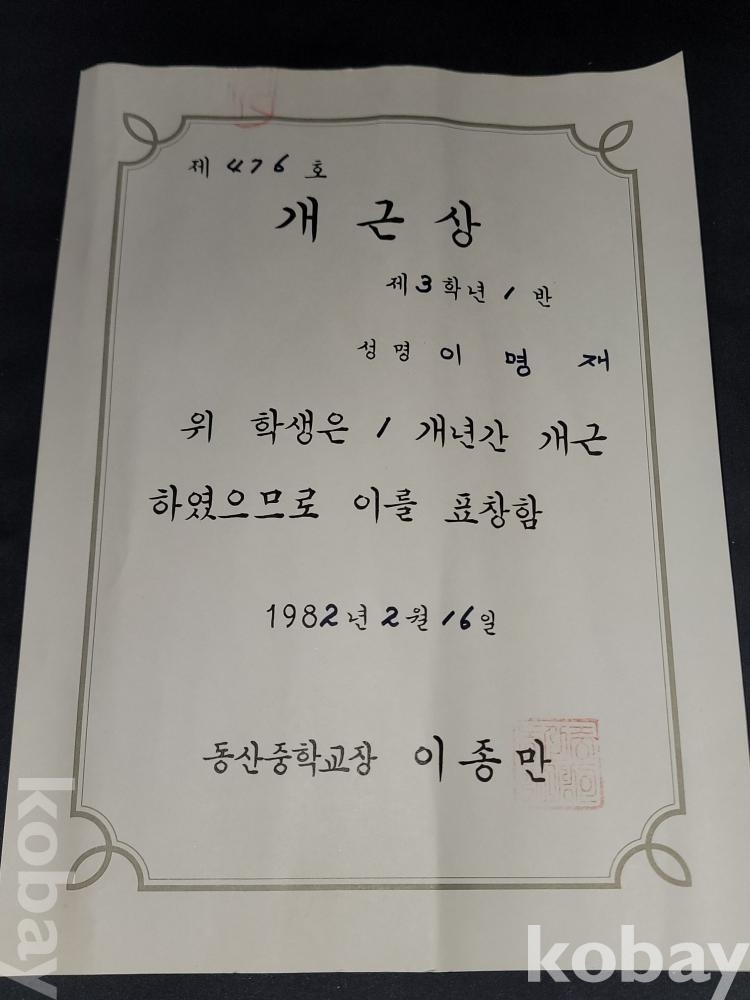 제 476 호
개 근 상
제 3 학년 1 반
성명 이 명 재
위 학생은 1 개년간 개근
하였으므로 이를 표창함
1982년 2월 16일
동산중학교장 이종만
kobay
kobay